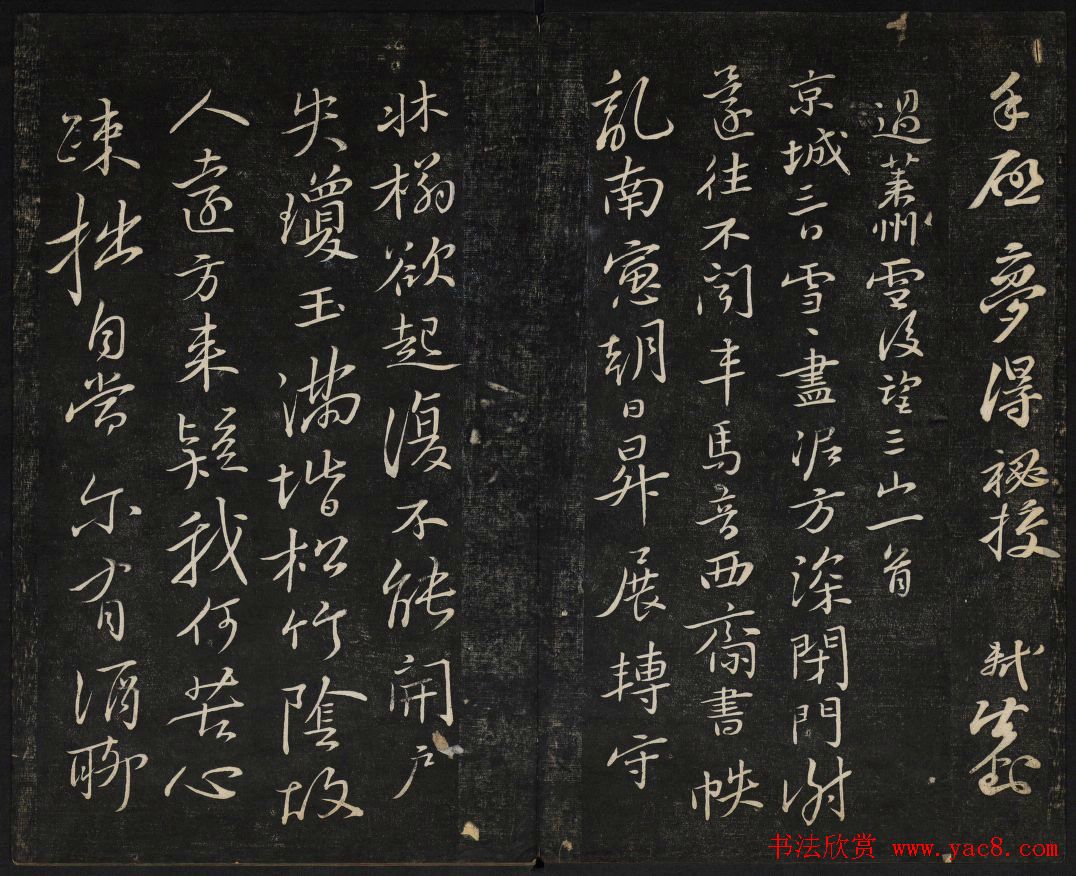 手啟夢得祕校 軾封
過萊州雪後望三山一首
京城三日雪〻盡泥方深閉門謝
還往不聞車馬音西齋書帙
亂南窻朝日昇展轉守
牀榻欲起復不能開戶
失瓊玉滿堦松竹陰故
人遠方來疑我何苦心
踈拙自當尔有酒聊
书法欣赏 www.yac8.com